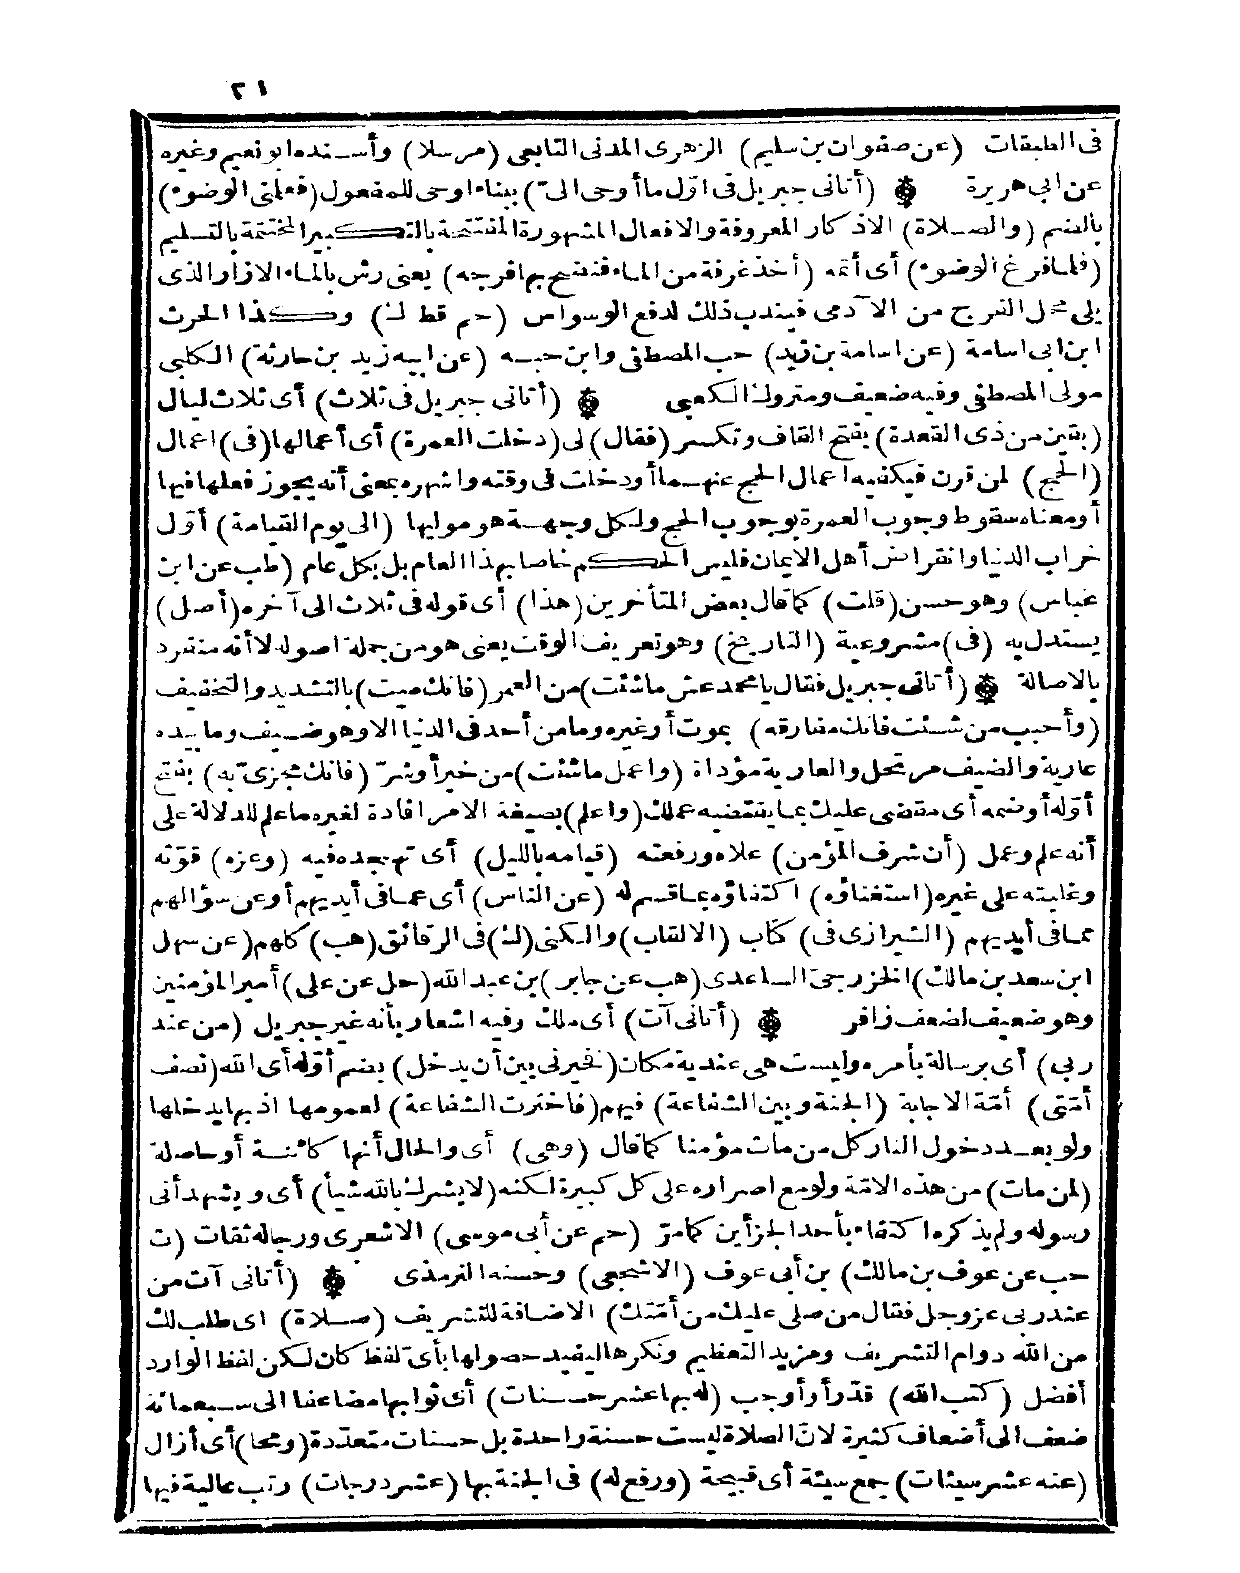 ٢١
فى الطبقات (عن صفوان بن سليم) الزهرى المدنى التابعى (مرسلا) وأسنده ابو نعيم وغيره
عن ابى هريرة ۞ (أتانى جبريل فى اوّل ما أوحى الىّ) ببناء اوحى للمفعول (فعلمنى الوضوء)
بالضم (والصلاة) الاذكار المعروفة والافعال المشهورة المفتتحة بالتكبير المختتمة بالتسليم
(فلما فرغ الوضوء) أى أتمه (أخذ غرفة من الماء فنضح بها فرجه) يعنى رش بالماء الازار الذى
يلى محل الفرج من الآدمى فيندب ذلك لدفع الوسواس (حم قط ك) وكذا الحرث
ابن ابى اسامة (عن اسامة بن زيد) حب المصطفى وابن حبه (عن ابيه زيد بن حارثة) الكلبى
مولى المصطفى وفيه ضعيف ومتروك الكعبى ۞ (أتانى جبريل فى ثلاث) أى ثلاث ليال
(بقين من ذى القعدة) بفتح القاف وتكسر (فقال) لى (دخلت العمرة) أى أعمالها (فى) اعمال
(الحج) لمن قرن فيكفيه اعمال الحج عنهما أو دخلت فى وقته واشهره بمعنى أنه يجوز فعلها فيها
أو معناه سقوط وجوب العمرة بوجوب الحج ولكل وجهة هو موليها (الى يوم القيامة) أوّل
خراب الدنيا وانقراض أهل الايمان فليس الحكم خاصا بهذا العام بل بكل عام (طب عن ابن
عباس) وهو حسن (قلت) كما قال بعض المتأخرين (هذا) أى قوله فى ثلاث الى آخره (أصل)
يستدل به (فى) مشروعية (التاريخ) وهو تعريف الوقت يعنى هو من جملة اصوله لا أنه منفرد
بالاصالة ۞ (أتانى جبريل فقال يا محمد عش ما شئت) من العمر (فانك ميت) بالتشديد والتخفيف
(وأحبب من شئت فانك مفارقه) بموت أو غيره وما من أحد فى الدنيا الا وهو ضيف وما بيده
عارية والضيف مرتحل والعارية مؤداة (واعمل ما شئت) من خير أو شرّ (فانك مجزىّ به) بفتح
أوّله أو ضمه أى مقضى عليك بما يقتضيه عملك (واعلم) بصيغة الامر افادة لغيره ما علم للدلالة على
أنه علم وعمل (أن شرف المؤمن) علاه ورفعته (قيامه بالليل) أى تهجده فيه (وعزه) قوّته
وغلبته على غيره (استغناؤه) اكتفاؤه بما قسم له (عن الناس) أى عما فى أيديهم أو عن سؤالهم
عما فى أيديهم (الشيرازى فى) كتاب (الالقاب) والكنى (ك) فى الرقائق (هب) كلهم (عن سهل
ابن سعد بن مالك) الخزرجى الساعدى (هب عن جابر) بن عبد الله (حل عن على) أمير المؤمنين
وهو ضعيف لضعف زافر ۞ (أتانى آت) أى ملك وفيه اشعار بأنه غير جبريل (من عند
ربى) أى برسالة بأمره وليست هى عندية مكان (فخيرنى بين أن يدخل) بضم أوّله أى الله (نصف
أمّتى) أمّة الاجابة (الجنة وبين الشفاعة) فيهم (فاخترت الشفاعة) لعمومها اذ بها يدخلها
ولو بعد دخول النار كل من مات مؤمنا كما قال (وهى) أى والحال أنها كائنة أو حاصلة
(لمن مات) من هذه الامّة ولو مع اصراره على كل كبيرة لكنه (لا يشرك بالله شيأ) أى ويشهد أنى
رسوله ولم يذكره اكتفاء بأحد الجزأين كما مرّ (حم عن أبى موسى) الاشعرى ورجاله ثقات (ت
حب عن عوف بن مالك) بن أبى عوف (الاشجعى) وحسنه الترمذى ۞ (أتانى آت من
عند ربى عز وجل فقال من صلى عليك من أمّتك) الاضافة للتشريف (صلاة) اى طلب لك
من الله دوام التشريف ومزيد التعظيم ونكرها ليفيد حصولها بأىّ لفظ كان لكن لفظ الوارد
أفضل (كتب الله) قدّر أو أوجب (له بها عشر حسنات) أى ثوابها مضاعفا الى سبعمائة
ضعف الى أضعاف كثيرة لانّ الصلاة ليست حسنة واحدة بل حسنات متعدّدة (ومحا) أى أزال
(عنه عشر سيئات) جمع سيئة أى قبيحة (ورفع له) فى الجنة بها (عشر درجات) رتب عالية فيها